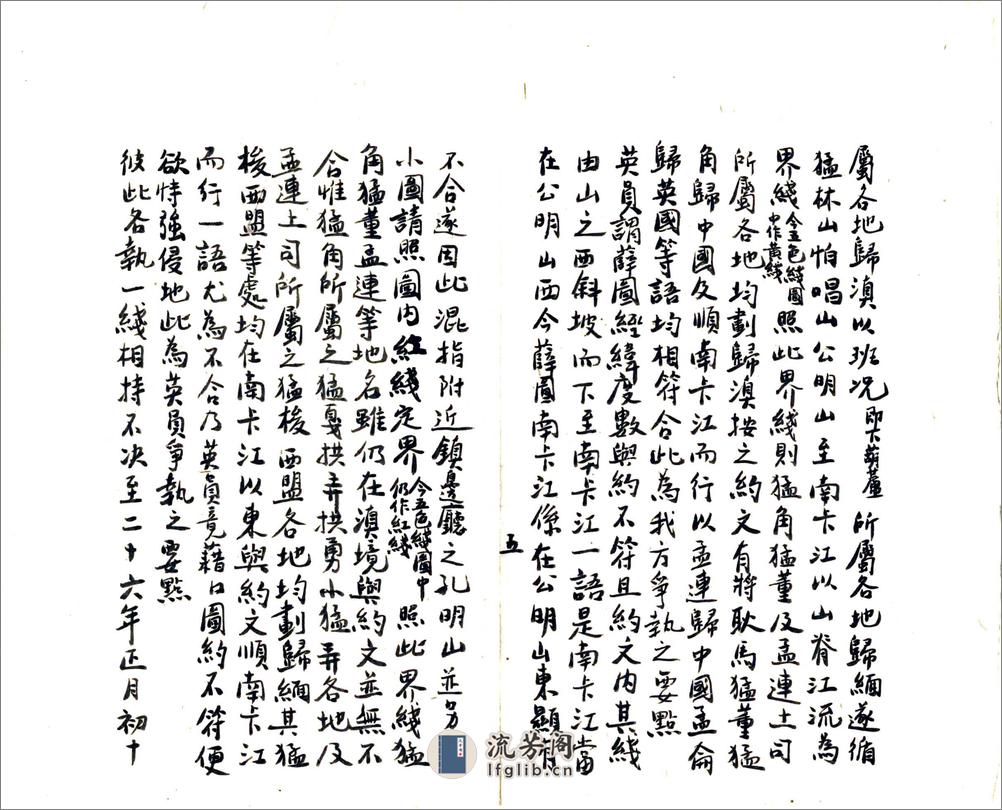 屬各地歸滇以班况即下葫蘆所屬各地歸緬遂循
猛林山怕唱山公明山至南卡江以山脊江流為
界綫今五色綫圖中作黄綫照此界綫則猛角猛董及孟連土司
所屬各地均劃歸滇按之約文有將耿馬猛董猛
角歸中國及順南卡江而行以孟連歸中國孟侖
歸英國等語均相符合此為我方爭執之要點
英員謂薛圖經緯度數與約不符且約文内其綫
由山之西斜坡而下至南卡江一語是南卡江當
在公明山西今薛圖南卡江係在公明山東顯
五
不合遂因此混指附近鎮邊廳之孔明山並另
小圖請照圖内紅綫定界今五色綫圖中仍作紅綫照此界綫猛
角猛董孟連等地名雖仍在滇境與約文並無不
合惟猛角所屬之猛戛拱弄拱勇小猛弄各地及
孟連土司所屬之猛梭西盟各地均劃歸緬其猛
梭西盟等處均在南卡江以東與約文順南卡江
而行一語尤為不合乃英員竟藉口圖約不符便
欲恃強侵地此為英員爭執之要點
彼此各執一綫相持不决至二十六年正月初十
流芳阁
lfglib.cn